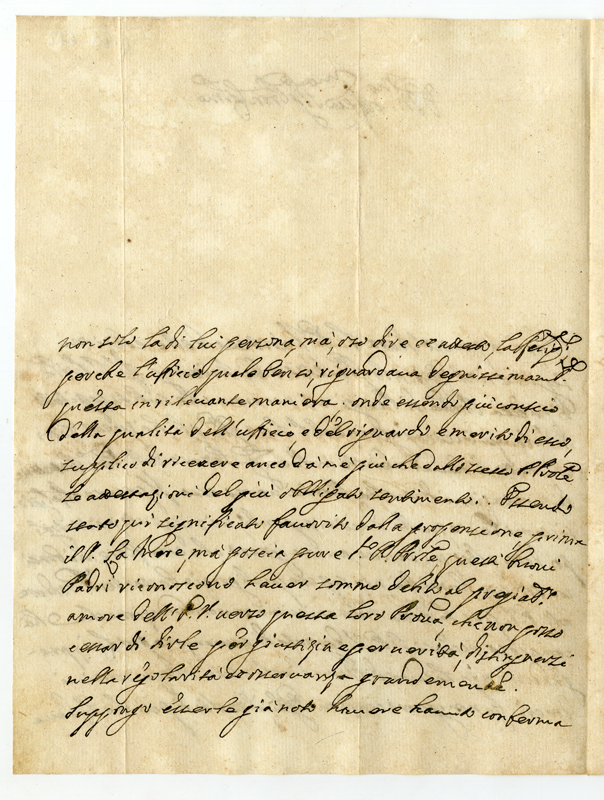 non solo la di lui persona, mà, oso dire ex adesto, la stessa
perche l'ufficio quale bensi riguardava degnissimamte.
questa in rilevante maniera. onde essendo più conscio
della qualità dell'ufficio, e del riguardo e merito di esso,
supplico di ricevere anco da me più che dallo stesso P. Prole
le attestazioni del più obbligato sentimento. Essendo
stato qui significato favorito dalla propensione prima
il P. La More, mà poscia pure P. Prole, questi buoni
Padri riconoscono haver sommo debito al pregiatmo.
amore dell. P. V. verso questa loro Prova, che non posso
cessar di dirle per giustizia e per verità, distinguersi
nella regolarità ed osservanza grandemente.
Suppongo esserle già noto havere havuto conferma